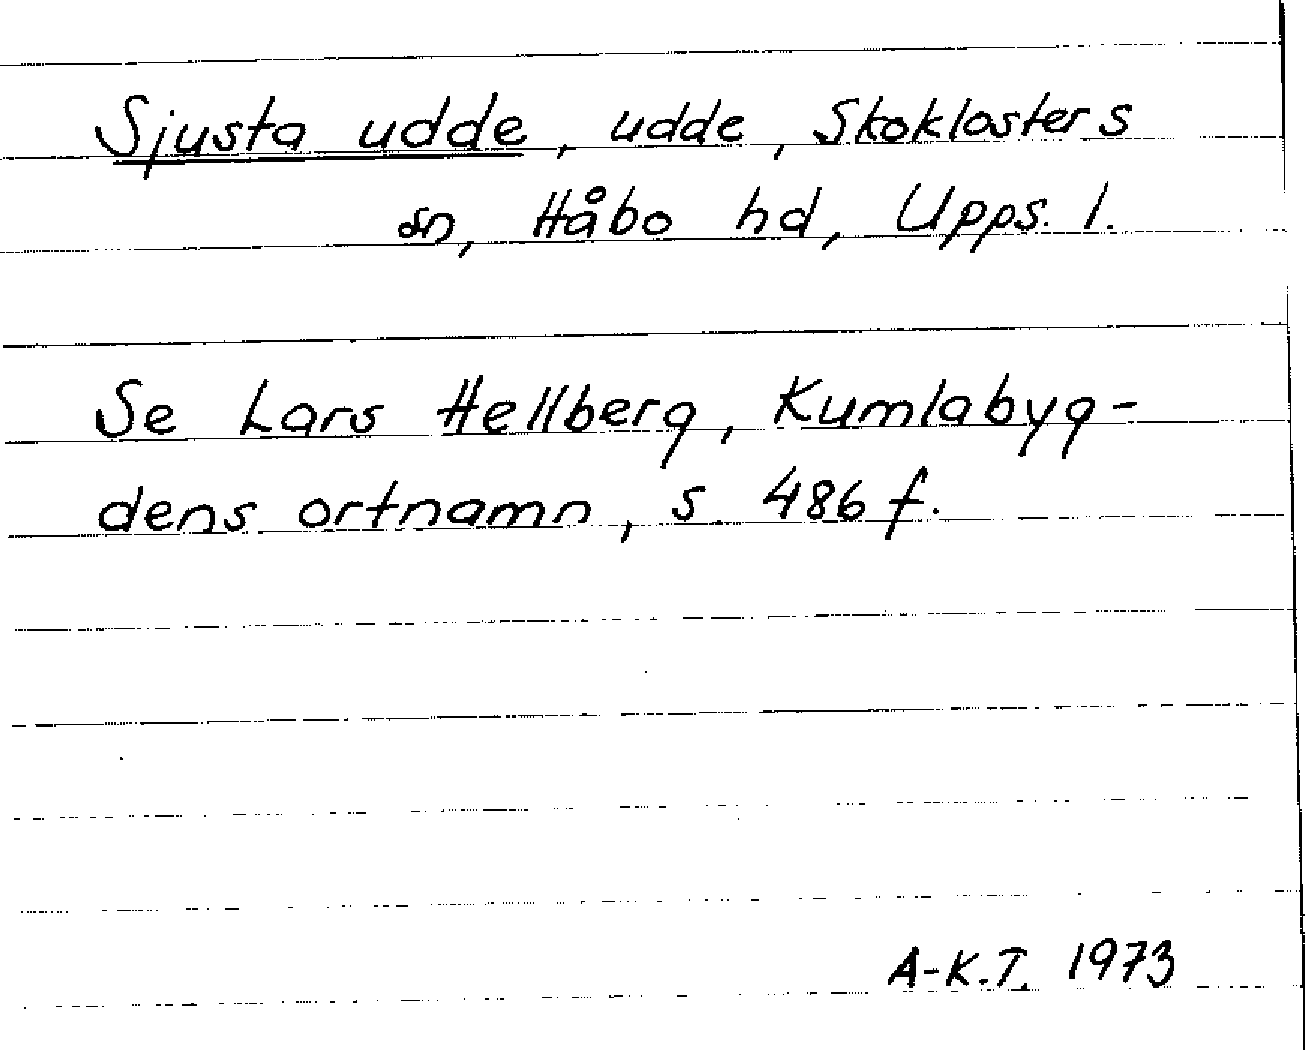 Sjusta udde, udde, Skoklosters
sn, Håbo hd, Upps. l.
Se Lars Hellberg, Kumlabyg-
dens ortnamn, s. 486 f.
A-K.T. 1973